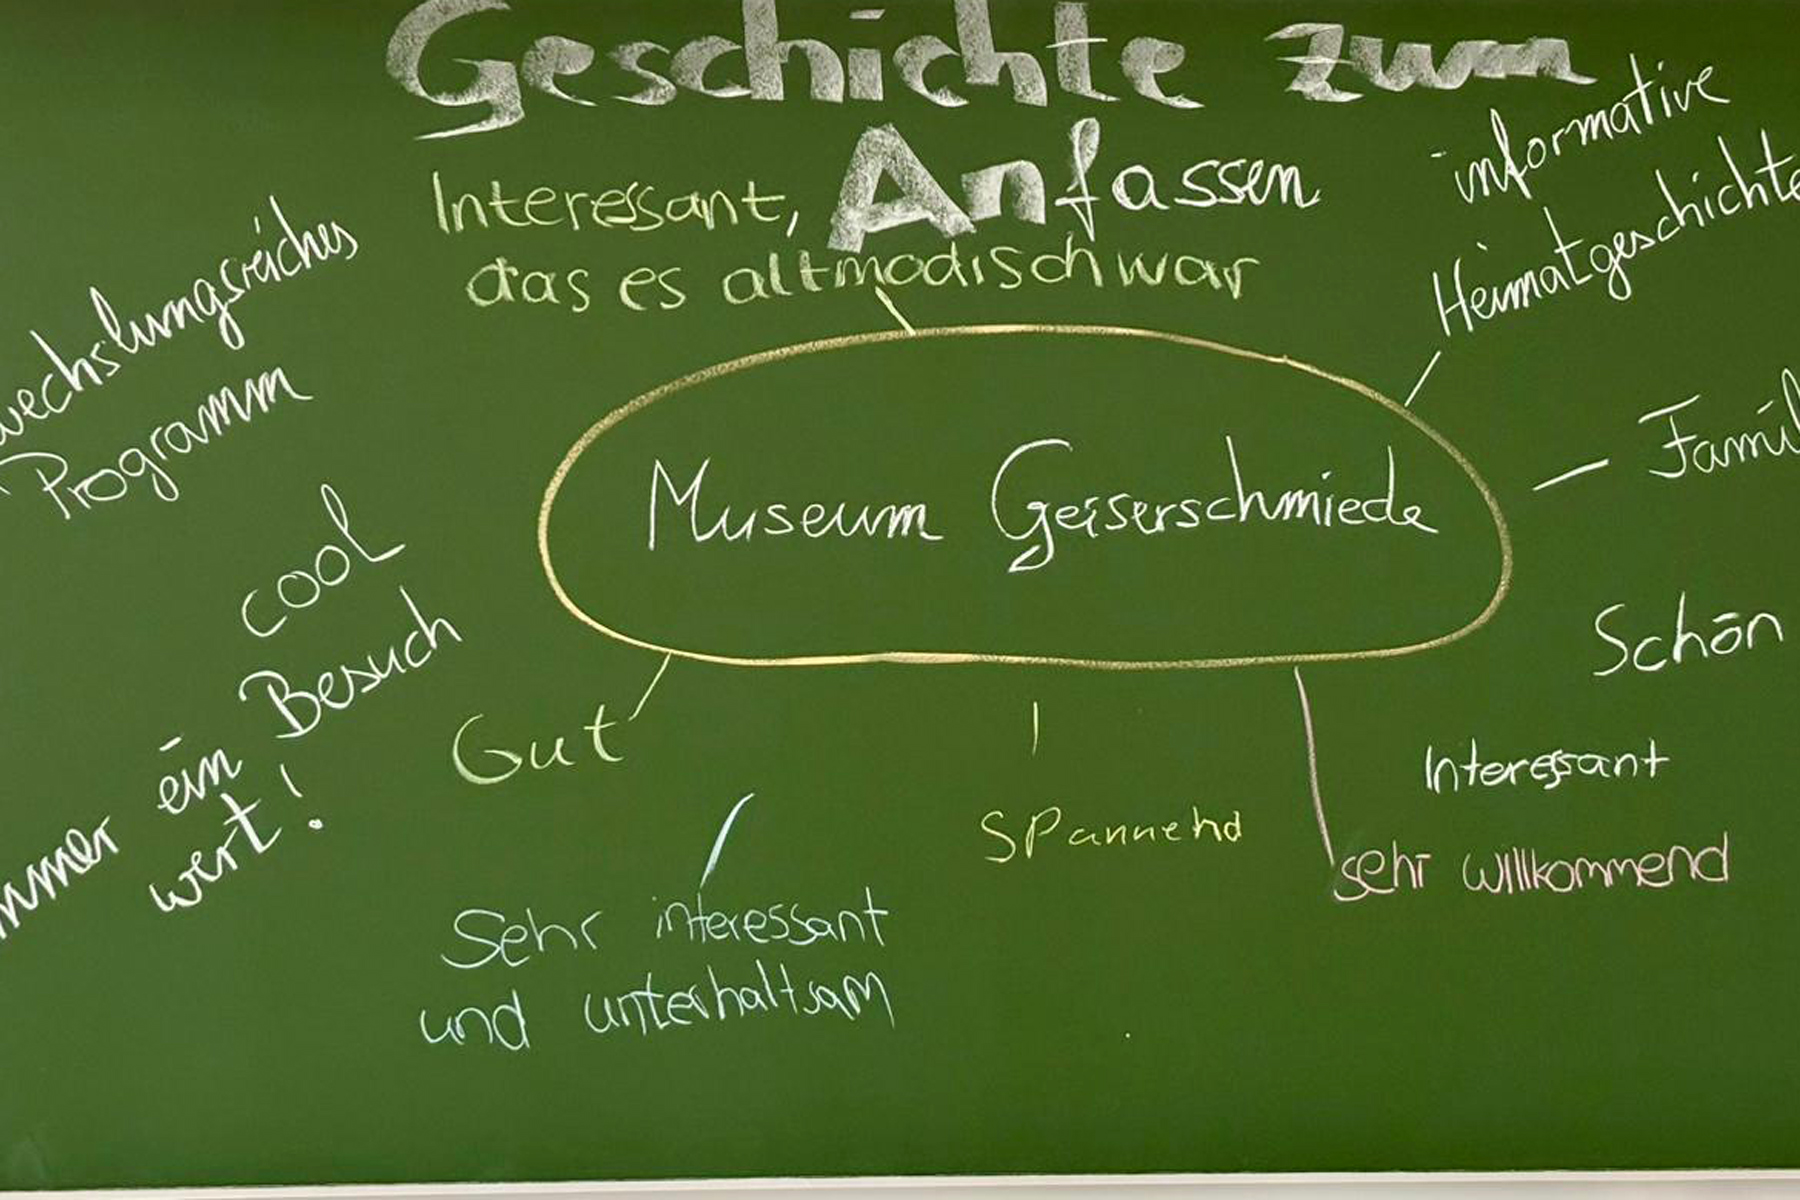 Geschichte zum
Anfassen
Interessant,
das es altmodisch war
informative
Heimatgeschichte
wechslungsreiches
Programm
Famil
Museum Geiserschmiede
cool
Schön
mmer ein Besuch
wert!
Gut
Interessant
Spannend
sehr willkommend
Sehr interessant
und unterhaltsam